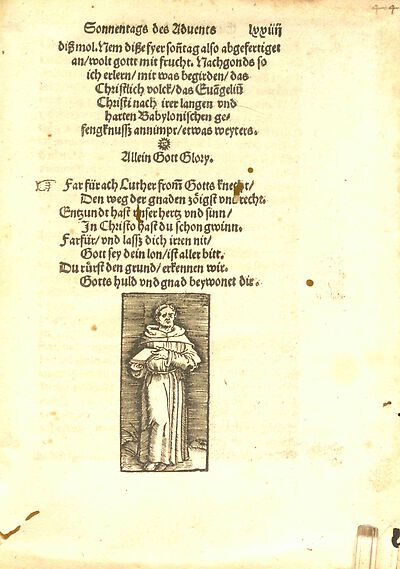 Sonnentags des Advents lxxiiij
dißmol. Nem diße fyer soñtag also abgefertiget
an/wolt gott mit frucht. Nachgonds so
ich erlern/mit was begirden/das
Christlich volck/das Euãgeliũ
Christi nach irer langen vnd
harten Babylonischen ge-
fengknusz annimpt/etwas weyters.
Allein Gott Glory.
☞ Far für ach Luther from̃ Gotts knecht/
Den weg der gnaden zöigst vns recht.
Entzundt hast vnser hertz vnd sinn/
In Christo hast du schon gwinn.
Farfür/vnd lassz dich irren nit/
Gott sey dein lon/ist aller bitt.
Du rürst den grund/erkennen wir.
Gotts huld vnd gnad beywonet dir.